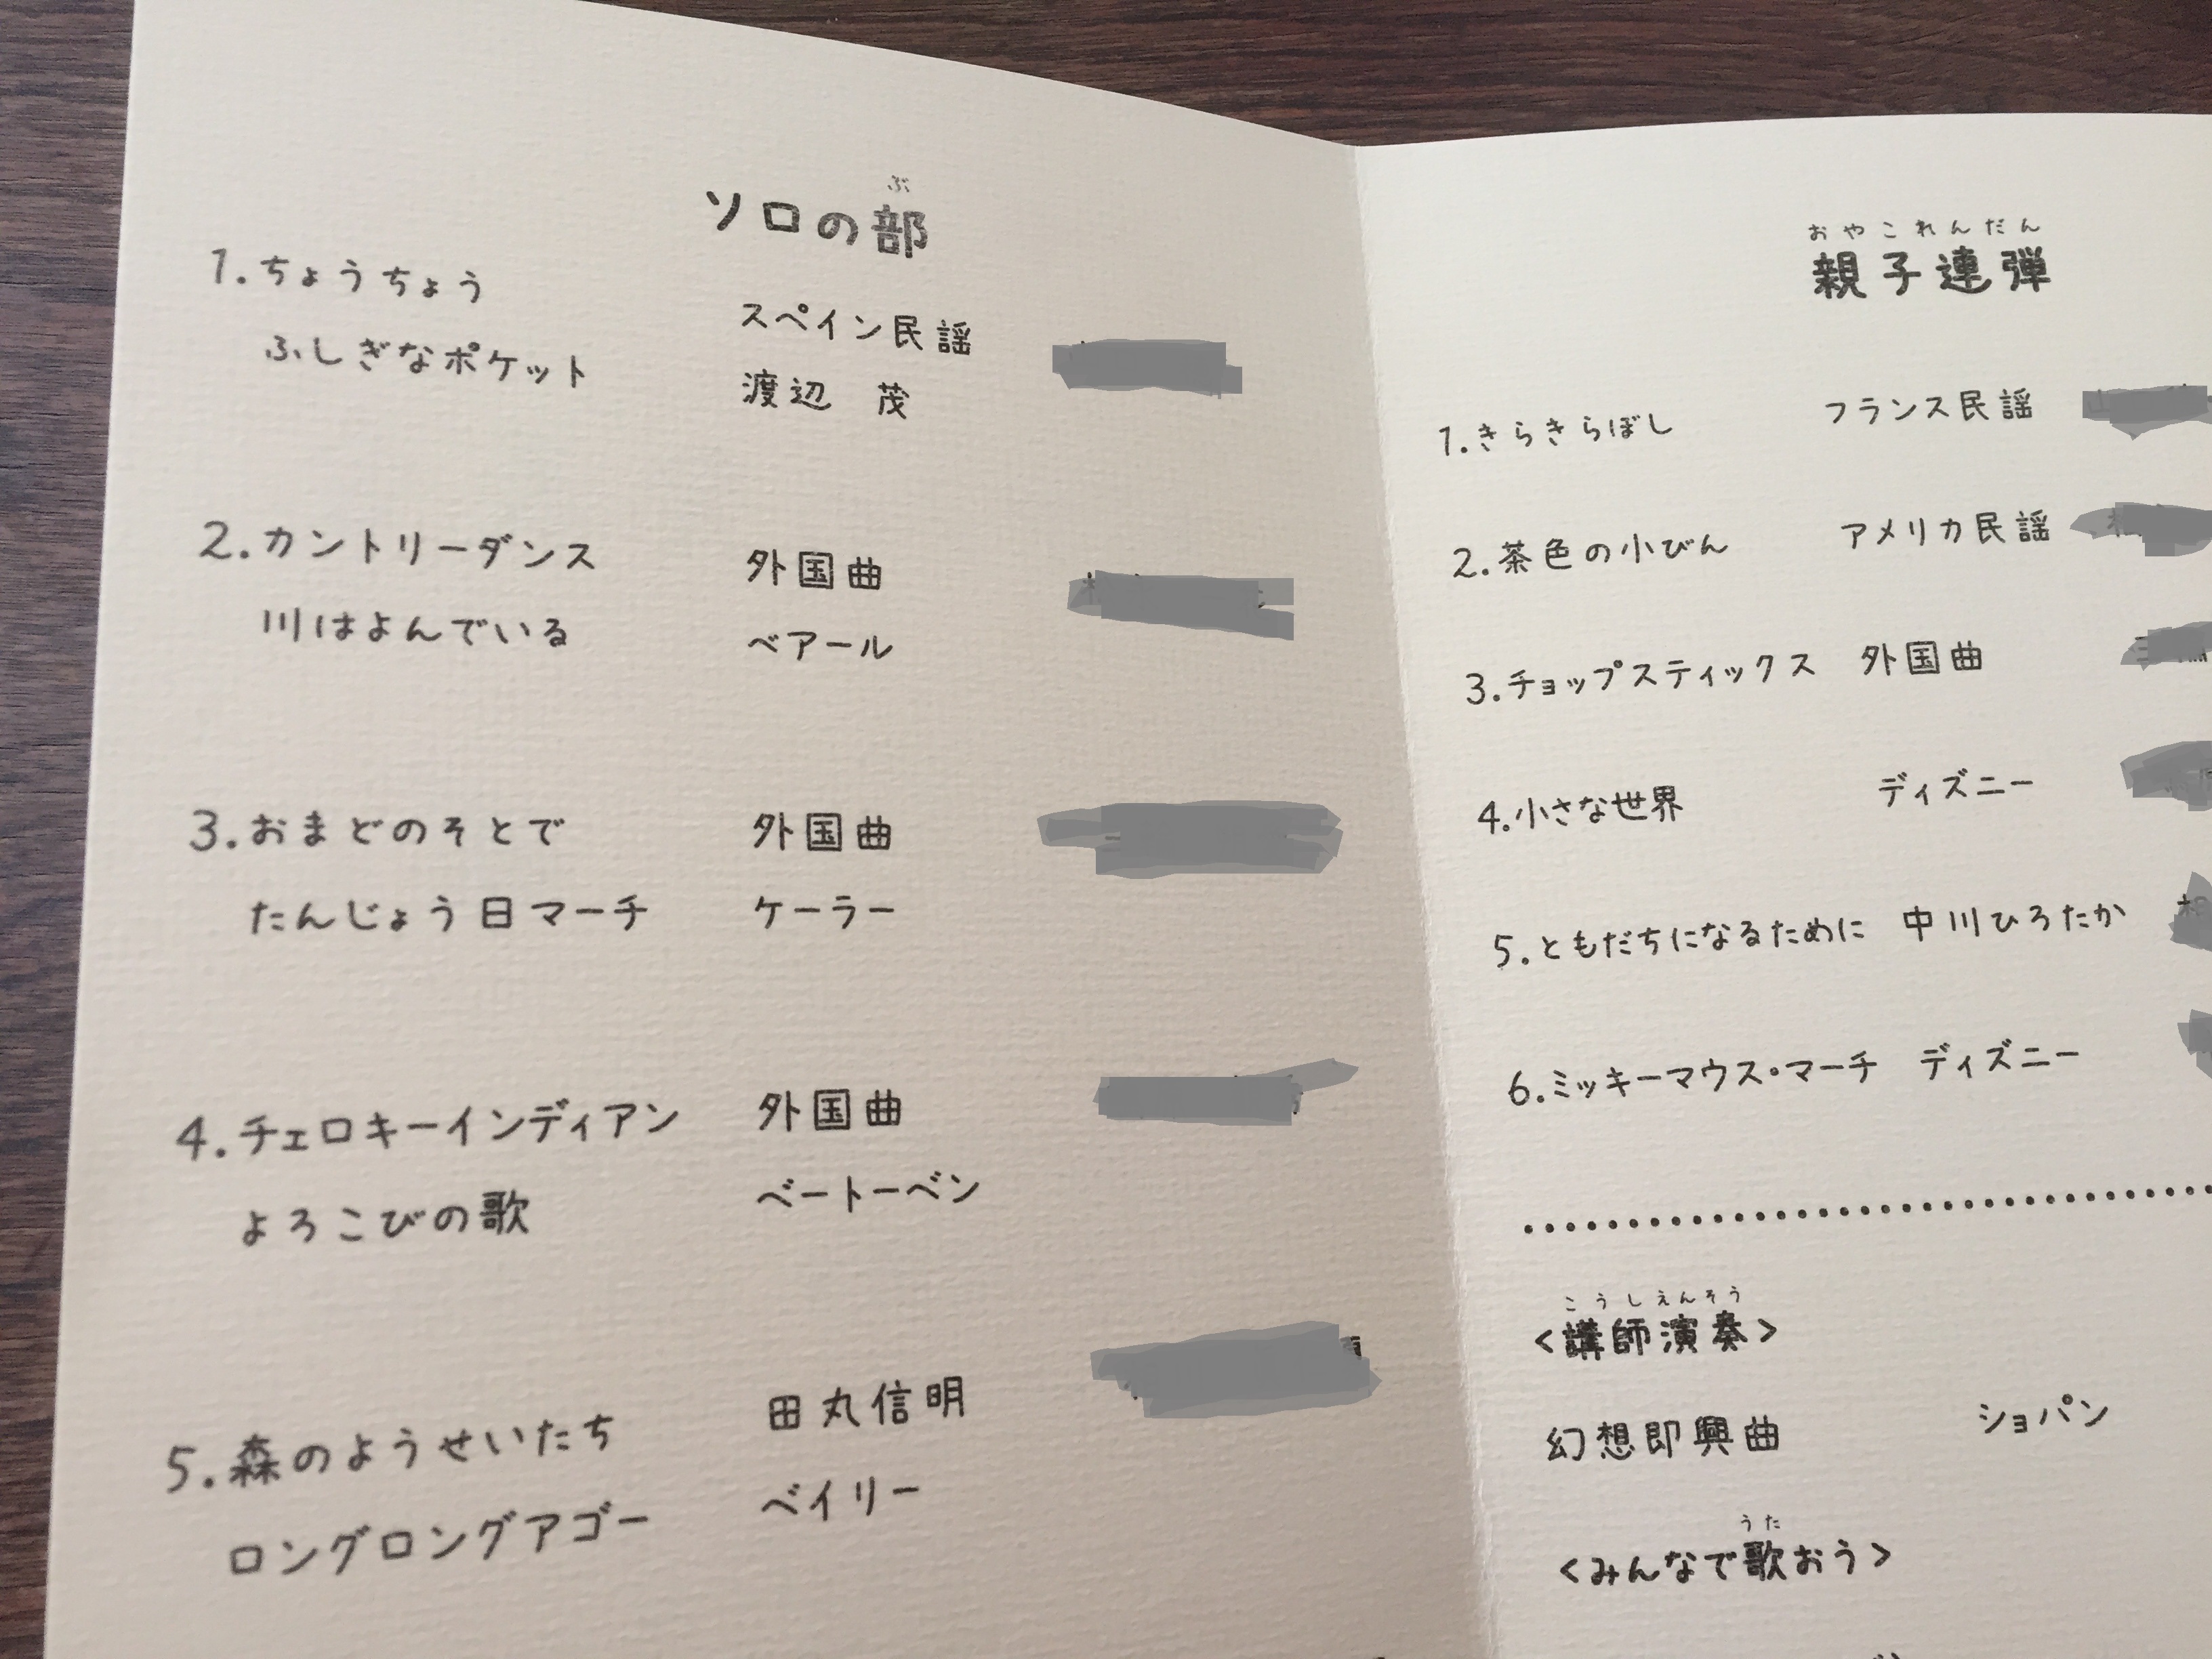 ぶ
ソロの部
1.ちょうちょう スペイン民謡
ふしぎなポケット 渡辺 茂
2.カントリーダンス 外国曲
川はよんでいる ベアール
3.おまどのそとで 外国曲
たんじょう日マーチ ケーラー
4.チェロキーインディアン 外国曲
よろこびの歌 ベートーベン
5.森のようせいたち 田丸信明
ロングロングアゴー ベイリー
おやこれんだん
親子連弾
1.きらきらぼし フランス民謡
2.茶色の小びん アメリカ民謡
3.チョップスティックス 外国曲
4.小さな世界 ディズニー
5.ともだちになるために 中川ひろたか
6.ミッキーマウス・マーチ ディズニー
こうしえんそう
<講師演奏>
幻想即興曲 ショパン
うた
<みんなで歌おう>